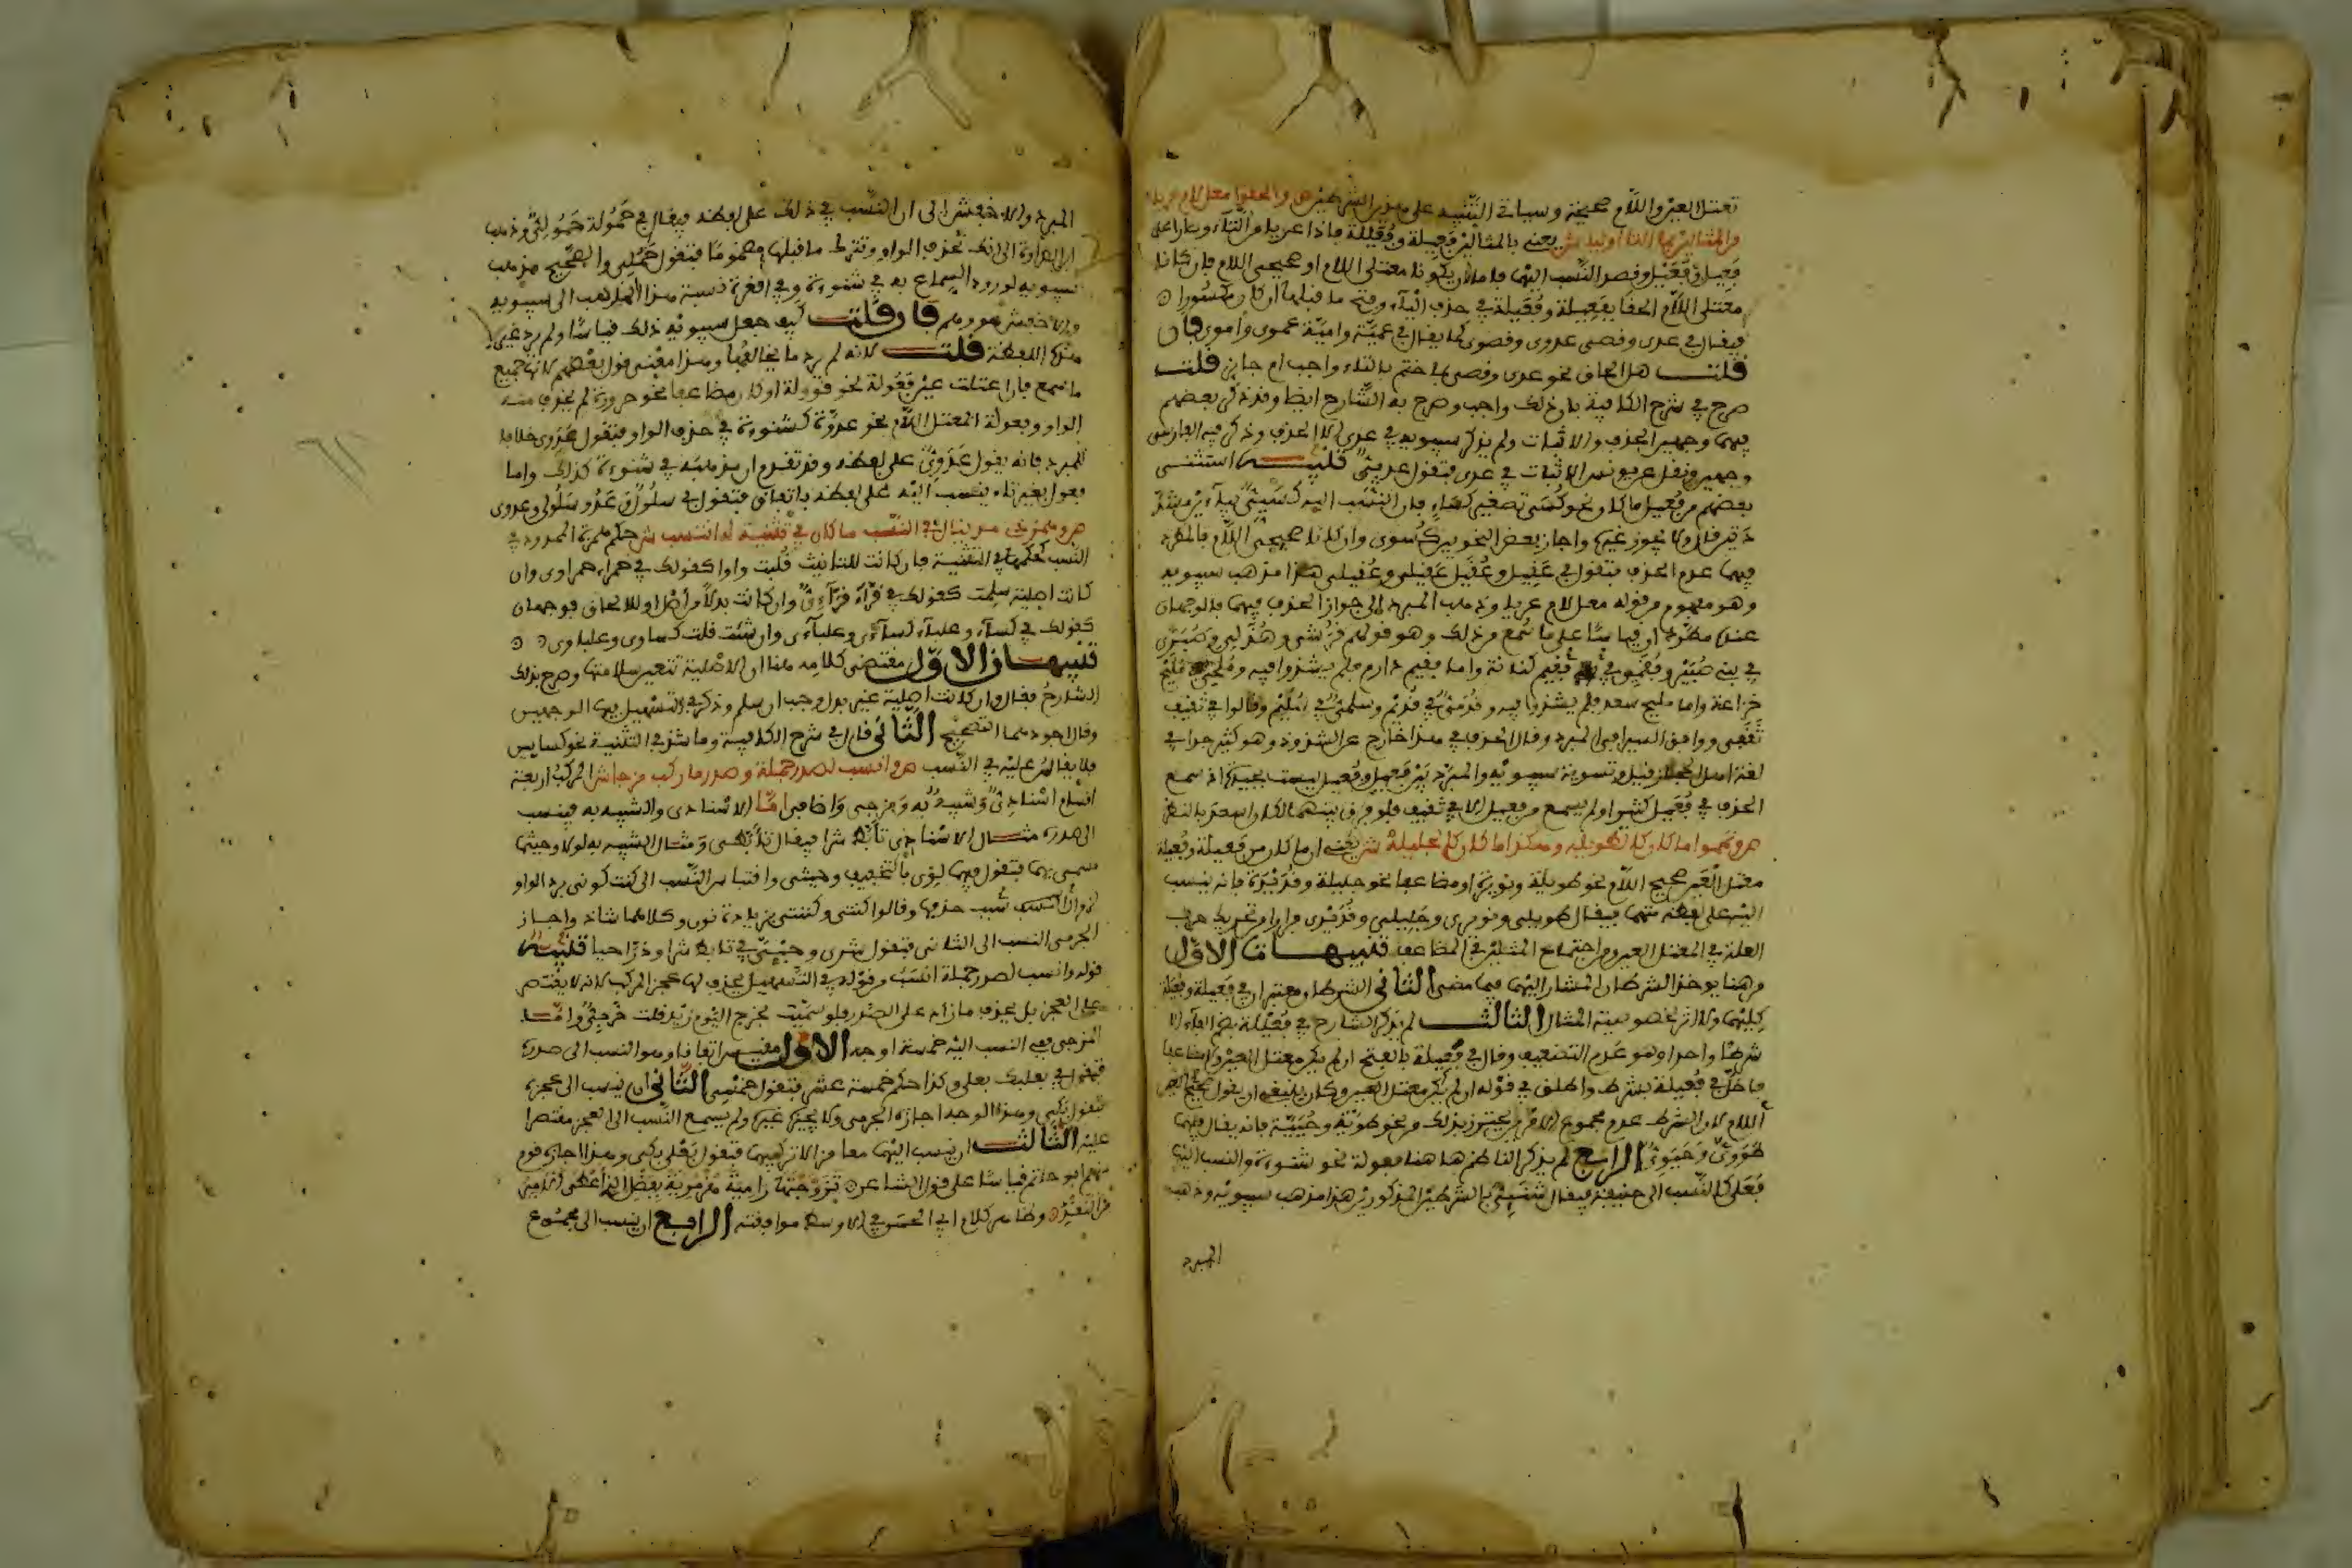 تعتل العين واللام صحيحة وسياتي التنبيه على هذين الشرطين ص والحقوا معل لام عريا
من المثالين بما التا اوليا ش يعني بالمثالين فعيلة وفعيلة فاذا عريا من التاء وصارا على
فعيل وفعيل وقصد النسب اليهما فاما ان يكونا معتلى اللام او صحيحى اللام فان كانا
معتلى اللام الحقا بفعيلة وفعيلة في حذف الياء وفتح ما قبلها ان كان مكسورا
فيقال في عدى وقصى عدوى وقصوى كما يقال في غنية وامية غنوى واموى فان
قلت هل الحاق نحو عدى وقصى بما ختم بالتاء واجب ام جايز قلت
صرح في شرح الكافية بان ذلك واجب وصرح به الشارح ايضا وقد ذكر بعضهم
فيهما وجهين الحذف والاثبات ولم يذكر سيبويه في عدى الا الحذف وذكر فيه الفارسى
وجهين ونقل عن يونس الاثبات في عدى فتقول عديى تنبيه استثنى
بعضهم من فعيل ما كان نحو كسى تصغير كساء فان النسب اليه كسيى بياءين مشد
دتين قال ولا يجوز غيره واجاز بعض النحويين كسوى وان كانا صحيحى اللام فالمطرد
فيهما عدم الحذف فتقول في عقيل وعقيل عقيلى وعقيلى هذا مذهب سيبويه
وهو مفهوم من قوله معل لام عريا وذهب المبرد الى جواز الحذف فيهما فالوجهان
عنده مطردان قياسا على ما سمع من ذلك وهو قولهم قرشى وهذلى وصبرى
في بنى صبير وفقمى في فقيم كنانة واما فقيم دارم فلم يشذوا فيه وملحى في مليح
خزاعة واما مليح سعد فلم يشذوا فيه وقرمى في قريم وسلمى في سليم وقالوا في ثقيف
ثقفى ووافق السيرافى المبرد وقال الحذف في هذا خارج عن الشذوذ وهو كثير جدا في
لغة اهل الحجاز قيل وتسوية سيبويه والمبرد بين فعيل وفعيل ليست بجيدة اذ سمع
الحذف في فعيل كثيرا ولم يسمع من فعيل الا في ثقيف فلو فرق بينهما لكان اسعد بالنظر
ص وتمموا ما كان كالطويله وهكذا ما كان كالجليلة ش يعنى ان ما كان من فعيلة وفعيلة
معتل العين صحيح اللام نحو طويلة ونويرة او مضاعفا نحو جليلة وقديرة فانه ينسب
اليه على لفظه متمما فيقال طويلى ونويرى وجليلى وقديرى فرارا من تحريك حرف
العلة في المعتل العين ومن اجتماع المثلين في المضاعف تنبيهات الاول
من هنا يوخذ الشرطان المشار اليهما فيما مضى الثانى الشرطان معتبران في فعيلة وفعيلة
كليهما ولا اثر لخصوصية المثال الثالث لم يذكر الشارح في فعيلة بضم الفاء الا
شرطا واحدا وهو عدم التضعيف وقال في فعيلة بالفتح ان لم يكن معتل العين ولا مضاعفا
فاخل في فعيلة بشرط واطلق في قوله ان لم يكن معتل العين وكان ينبغى ان يقول صحيح
اللام لان الشرط عدم مجموع الامرين يحترز بذلك من نحو طوية وحيية فانه يقال فيهما
طووى وحيوى الرابع لم يذكر الناظم هاهنا فعولة نحو شنوءة والنسب اليه
فعلى كالنسب الى حنيفة فيقال شنئى بالشرطين المذكورين هذا مذهب سيبويه وذهب
المبرد
المبرد والاخفش الى ان النسب في ذلك على لفظه فيقال في حمولة حمولى وذهب
ابن الطراوة الى انك تحذف الواو وتترك ما قبلها مضموما فتقول حملى والصحيح مذهب
سيبويه لورود السماع به في شنوءة وفى الغرة نسبة هذا المذهب الى سيبويه
والاخفش هو وهم فان قلت كيف جعل سيبويه ذلك قياسا ولم يرد غير
هذه اللفظة قلت لانه لم يرد ما يخالفها وهذا معنى قول بعضهم لانها جميع
ما سمع فان اعتلت عين فعولة نحو قوولة او كان مضاعفا نحو حرورة لم تحذف منه
الواو وفعولة المعتل اللام نحو عدوة كشنوءة في حذف الواو فتقول عدوى خلافا
للمبرد فانه يقول عدوى على لفظه وقد تقدم ان مذهبه في شنوءة كذلك واما
فعول بغير تاء ينسب اليه على لفظه باتفاق فتقول في سلول وعدو سلولى وعدوى
ص وهمز ذى مد ينال في النسب ما كان في تثنية له انتسب ش حكم همزة الممدود في
النسب كحكمها في التثنية فان كانت للتانيث قلبت واوا كقولك في حمراء حمراوى وان
كانت اصلية سلمت كقولك في قراء قراءى وان كانت بدلا من اصل او للالحاق فوجهان
كقولك في كساء وعلباء كساءى وعلباءى وان شئت قلت كساوى وعلباوى
تنبيهان الاول مقتضى كلامه هنا ان الاصلية تتعين سلامتها وصرح بذلك
الشارح فقال وان كانت اصلية غير بدل وجب ان يسلم وذكر في التسهيل فيها الوجهين
وقال اجودهما التصحيح الثانى قال في شرح الكافية وما شذ في التثنية نحو كسايين
فلا يقاس عليه في النسب ص وانسب لصدر جملة وصدر ما ركب مزجا ش المركب اربعة
اقسام اسنادى وشبيه به ومزجى واضافى اما الاسنادى والشبيه به فينسب
الى صدره مثال الاسنادى تابط شرا فيقال تابطى ومثال الشبيه به لولا وحيثما
مسمى بهما فتقول فيهما لوى بالتخفيف وحيثى وافتباس النسب الى كنت كونى برد الواو
لزوال سبب حذفها وقالوا كنتى وكنتنى بزيادة نون وكلاهما شاذ واجاز
الجرمى النسب الى الثانى فتقول شرى وحبى في تابط شرا وذرى حبا تنبيه
قوله وانسب لصدر جملة انسب من قوله في التسهيل يحذف لها عجز المركب لانه لا يقتصر
على العجز بل يحذف ما زاد على الصدر فلو سميت بخرج اليوم زيد قلت خرجى واما
المزجى ففى النسب اليه خمسة اوجه الاول مقيس اتفاقا وهو النسب الى صدره
فيقول في بعلبك بعلى وكذا حكم خمسة عشر فتقول خمسى الثانى ان ينسب الى عجزه
فتقول بكى وهذا الوجه اجازه الجرمى ولا يجيزه غيره ولم يسمع النسب الى العجز مقتصرا
عليه الثالث ان ينسب اليهما معا مزالا تركيبهما فتقول بعلى بكى وهذا اجازه قوم
منهم ابو حاتم قياسا على قول الشاعر تزوجتها رامية هرمزية بفضل الذى اعطى الامير
من النقد وظاهر كلام ابى الحسن في الاوسط موافقته الرابع ان ينسب الى مجموع